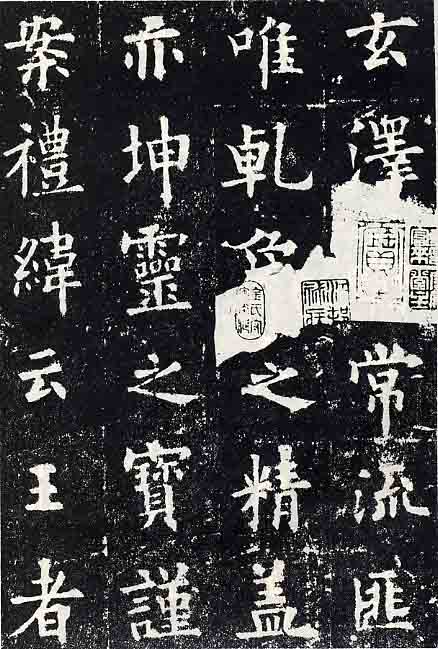 玄澤常流匪
唯乾象之精盖
亦坤靈之寶謹
案禮緯云王者